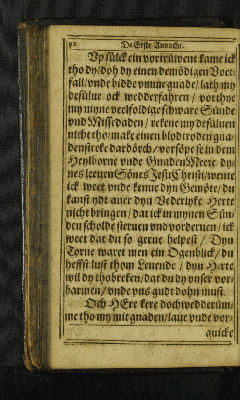 92 De Erste Andacht.
Up sülck ein vortrůwent kame ick
tho dy/ doh dy einen demödigen Voet-
fall/ vnde bidde vmme gnade/ lath my
desülue ock wedderfahren/ vorthne
my myne veelfoldige schwarc Sünde
vnd Missedaden/ rekene my desüluen
nicht tho/ make einen blodtroden gna-
denstreke dardörch/ vorsöpe se in dem
Heylborne vnde GnadenMeere dy-
nes leeuen Sönes Jesu Christi/ wente
ick weet vnde kenne dyn Gemöte/ du
kanst ydt auer dyn Vederlyke Herte
nicht bringen/ dat ick in mynen Sün-
den scholde steruen vnd vorderuen/ ick
weet dat du so gerne helpest/ Dyn
Torne waret men ein Ogenblick/ du
heffst lust thom Leuende/ dyn Herte
wil dy thobreken/ dat du dy vnser vor-
barmen/ vnde vns gudt dohn must.
Och HEre kere doch wedderüm-
me tho my mit gnaden/ laue vnde vor-
quicke